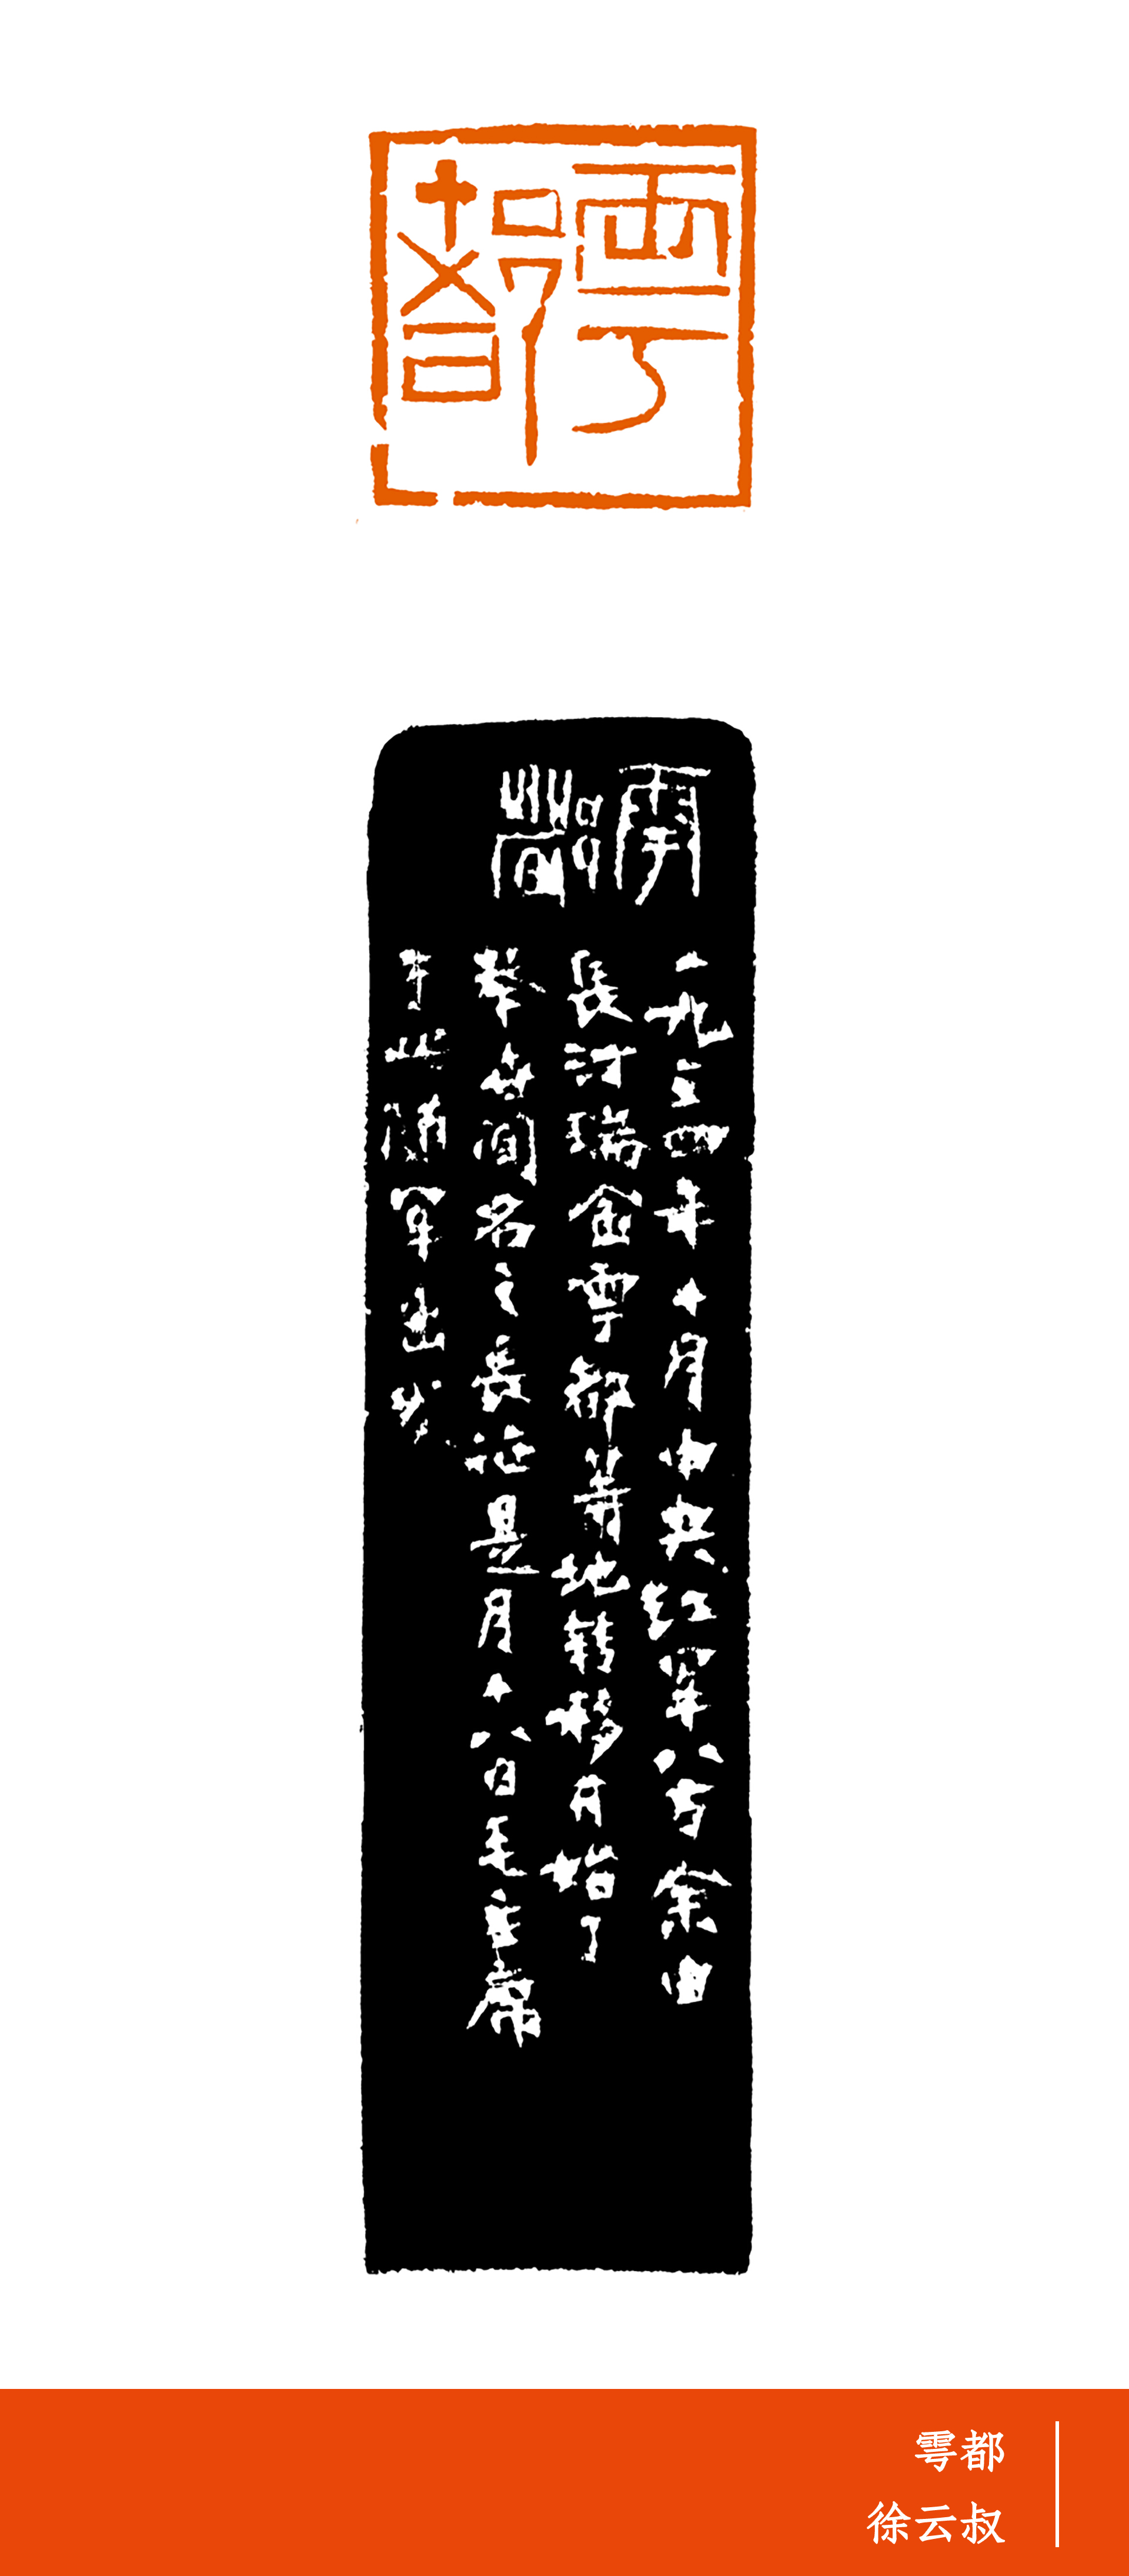 雩都
雩都
一九三四年十月中央红军八万余由
长汀瑞金雩都等地转移开始了
举世闻名之长征是月十八日毛主席
于此随军出发
雩都
徐云叔